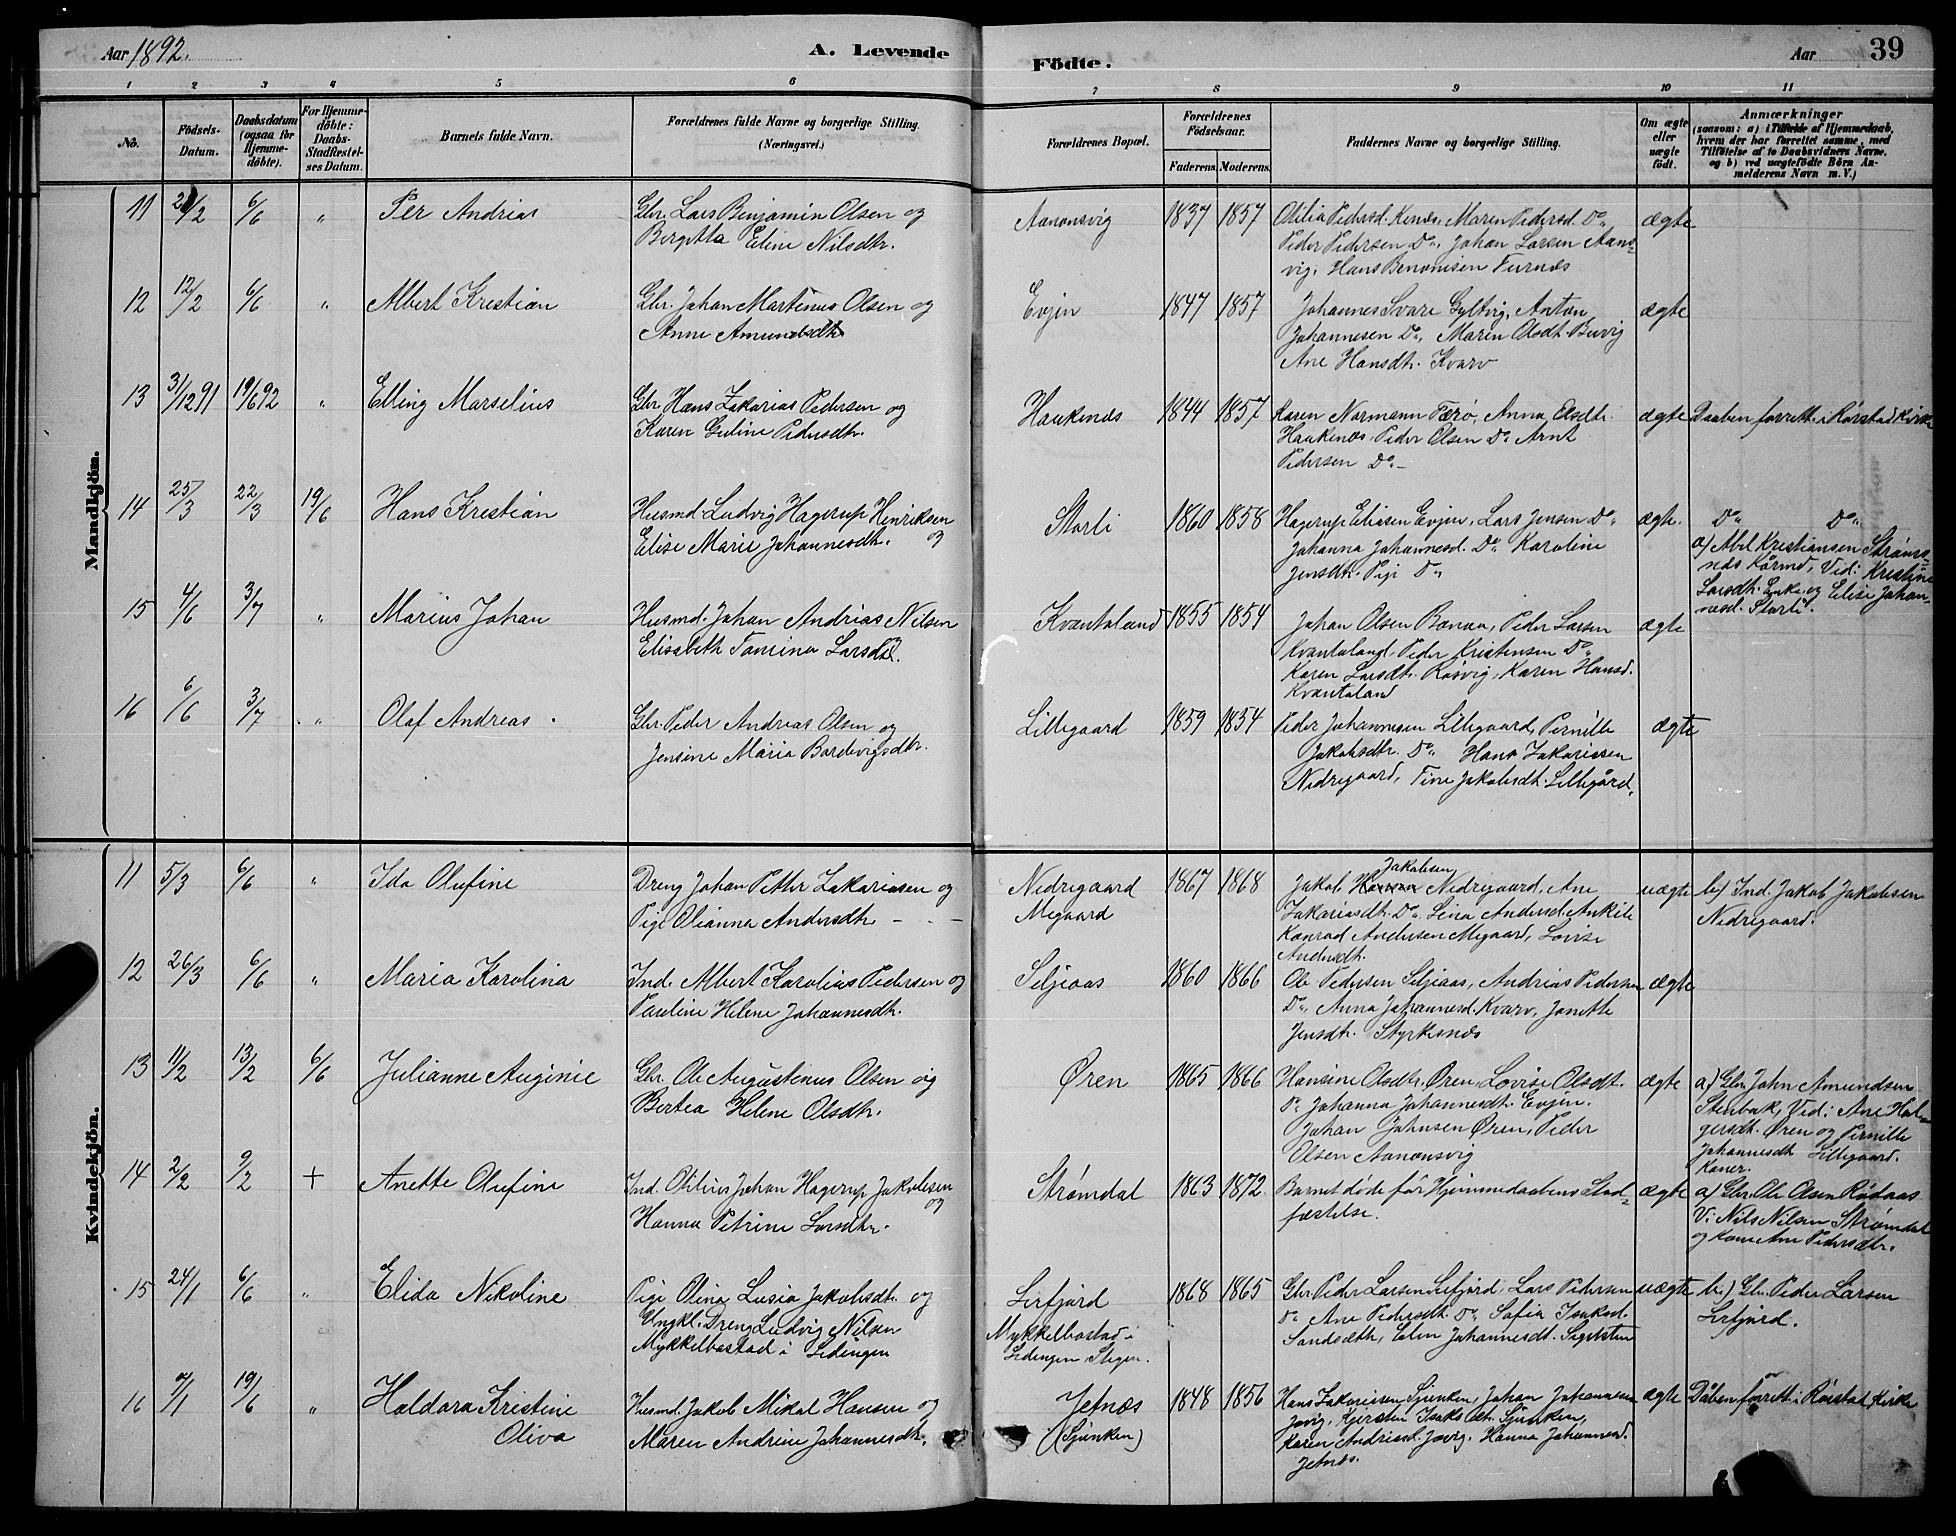 Aar 1892. A. Levende Födte. Aar 39
1 2 3 4 5 6 7 8 9 10 11
No. Födsels-Datum. Daabsdatum (ogsaa for Hjemmedöbte). For Hjemmedöbte: Daabs-Stadfæstelses Datum. Barnets fulde Navn. Forældrenes fulde Navne og borgerlige Stilling. (Næringsvei.) Forældrenes Bopæl. Forældrenes Födselsaar. Faderens. Moderens. Faddernes Navne og borgerlige Stilling. Om ægte eller uægte födt. Anmærkninger (saasom: a) i Tilfælde af Hjemmedaab, hvem der har forrettet samme, med Tilföielse af to Daabsvidners Navne, og b) ved uægtefödte Börn Anmelderens Navn m. V.)
Mandkjön.
11 21/2 6/6 " Per Andrias Gbr. Lars Benjamin Olsen og Aanonsvig 1837 1857 Otilia Pedersd. Kenæs, Maren Pedersd. Do, ægte
Bergitta Eline Nilsdtr. Peder Pedersen Do, Johan Larsen Aans-
vig, Hans Benonisen Furnæs
12 12/2 6/6 " Albert Krestian Gbr. Johan Martenus Olsen og Evjen 1847 1857 Johannes Svare Gyltvig, Anton ægte
Anne Amundsdtr Johannesen Do, Maren Olsdt. Buvig
Ane Hansdtr. Kvarv
13 31/12 91 19/6 92 " Elling Marselius Gbr Hans Zakarias Pedersen og Haukenæs 1844 1857 Karen Normann Færø, Anna Elsdtr. ægte Daaben forrett. i Rørstad Kirke
Karen Gurine Pedersdtr. Haukenæs, Peder Olsen Do Arnt
Pedersen Do
14 25/3 22/3 19/6 Hans Krestian Husmd. Ludvig Hagerup Henriksen Storli 1860 1858 Hagerup Eliasen Evjen, Lars Jensen Do, ægte. Do Do
Elise Marie Johannesdtr. og Johanna Johannesd. Do Karoline a) Abel Kristiansen Strøms-
Jensdtr. Pige Do næs Kårmd, Vid: Kristine
Larsdtr. Enke og Elise Johan-
nesd. Storli.
15 4/6 3/7 " Marius Johan Husmd. Johan Andrias Nilsen Kvantoland 1855 1854 Johan Olsen Bonaa, Peder Larsen ægte
Elisabeth Tomina Larsdtr. Kvantoland. Peder Kristensen Do
Karen Larsdtr. Røsvig, Karen Hansd.
Kvantoland
16 6/6 3/7 " Olaf Andreas Gbr. Peder Andreas Olsen og Lillegaard 1859 1854 Peder Johannesen Lillegaard, Pernille ægte
Jensine Maria Bordevigsdtr. Jakobsdtr. Do Hans Zakariasen
Nedregaard, Tine Jakobsdt. Lillegård,
Kvindekjön.
11 5/3 6/6 " Ida Olufine Dreng Johan Petter Zakariasen og Nedregaard 1867 1868 Jakob Jakobsen Nedregaard, Ane uægte b) Ind. Jakob Jakobsen
Pige Olianna Andersdtr. Megaard Zakariasdtr. Do Lina Andersd. Nedregaard.
Konrad Andersen Megaard, Lovise
Andersdt.
12 26/3 6/6 " Maria Karolina Ind. Albert Karolius Pedersen og Seljeaas 1860 1866 Ole Pedersen Seljeaas, Andrias Pedersen ægte
Pauline Helene Johannesdtr. Do, Anna Johannesd. Kvarv, Janette
Jensdtr. Styrkesnæs
13 11/2 13/2 6/6 Julianne Auginie Gbr. Ole Augustenus Olsen og Øren 1865 1866 Hansine Olsdtr. Øren, Lovise Olsdt. ægte a) Gbr. John Amundsen
Bertea Helene Olsdtr. Do Johanna Johannesdt. Evjen. Stenbak, Vid: Ane Hol-
Johan Johnsen Øren, Peder gersdt. Øren og Pernille
Olsen Aanonsvig Johannesdt Lillegaard.
Koner.
14 2/2 9/2 + Anette Olufine Ind. Otilius Johan Hagerup Jakobsen Strømdal 1863 1872. Barnet døde før Hjemmedaabens Stad- ægte a) Gbr. Ole Olsen Rødaas
og fæstelse. V: Nils Nilsen Strømdal
Hanna Petrine Larsdtr. og Kone Ane Pedersdtr.
15 24/1 6/6 " Elida Nikoline Pige Olina Lusia Jakobsdt. og Lerfjord 1868 1865 Gbr. Peder Larsen Lerfjord, Lars Pedersen uægte b.) Gbr. Peder Larsen
Ungkl. Dreng Ludvig Nilsen Mykkelbostad i Do Ane Pedersdt. Do, Sofia Isaksd. Lerfjord.
Mykkelbostad i Ledingen Ledingen, Stegen. Sandsæth, Elen Johannesdt. Segelsten
16 7/1 19/6 " Haldora Kristine Husmd. Jakob Mikal Hansen og Jetnæs 1848 1856 Hans Zakariasen Sjunken, Johan Johannesen ægte Dåben forrett. i Rørstad Kirke
Oliva Maren Andrine Johannesdtr. (Sjunken) Jøvig, Kjersten Isaksdt. Sjunken,
Karen Andreasd. Jøvig, Hanna Johannesd.
Jetnæs.